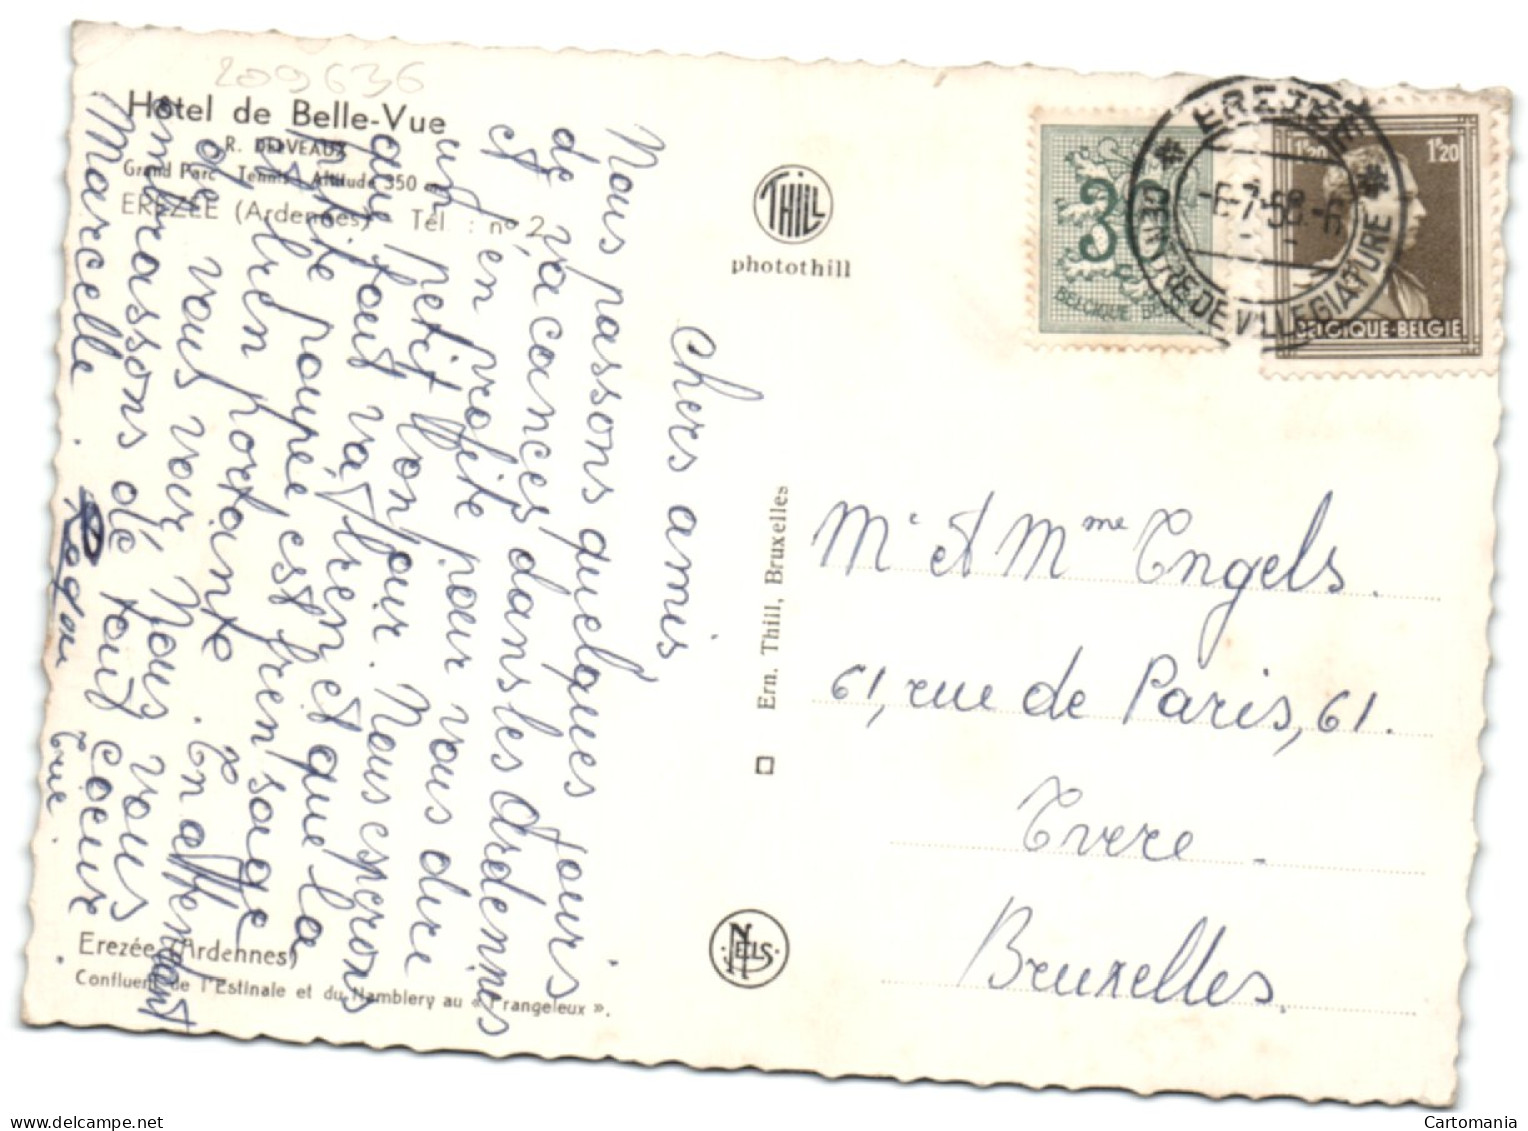 209636
Hôtel de Belle-Vue
R. DELVEAUX
Grand Parc Tennis Altitude 350 m
EREZÉE (Ardennes) Tél : n° 2
Chers amis
Nous passons quelques jours
de vacances dans les Ardennes
et j'en profite pour vous dire
un petit bonjour. Nous espérons
que tout va bien et que la
petite poupée est bien sage
et bien portante. En attendant
de vous voir, Nous vous
embrassons de tout coeur.
Marcelle.
Erezée (Ardennes)
Confluent de l'Estinale et du Namblery au « Frangeleux ».
THILL
photothill
Ern. Thill, Bruxelles
NELS
30
BELGIQUE BEL
1F20 1F20
BELGIQUE-BELGIE
EREZEE
-6-7-58.-
CENTRE DE VILLEGIATURE
Mr et Mme Engels.
61, rue de Paris, 61.
Evere.
Bruxelles.
Cartomania